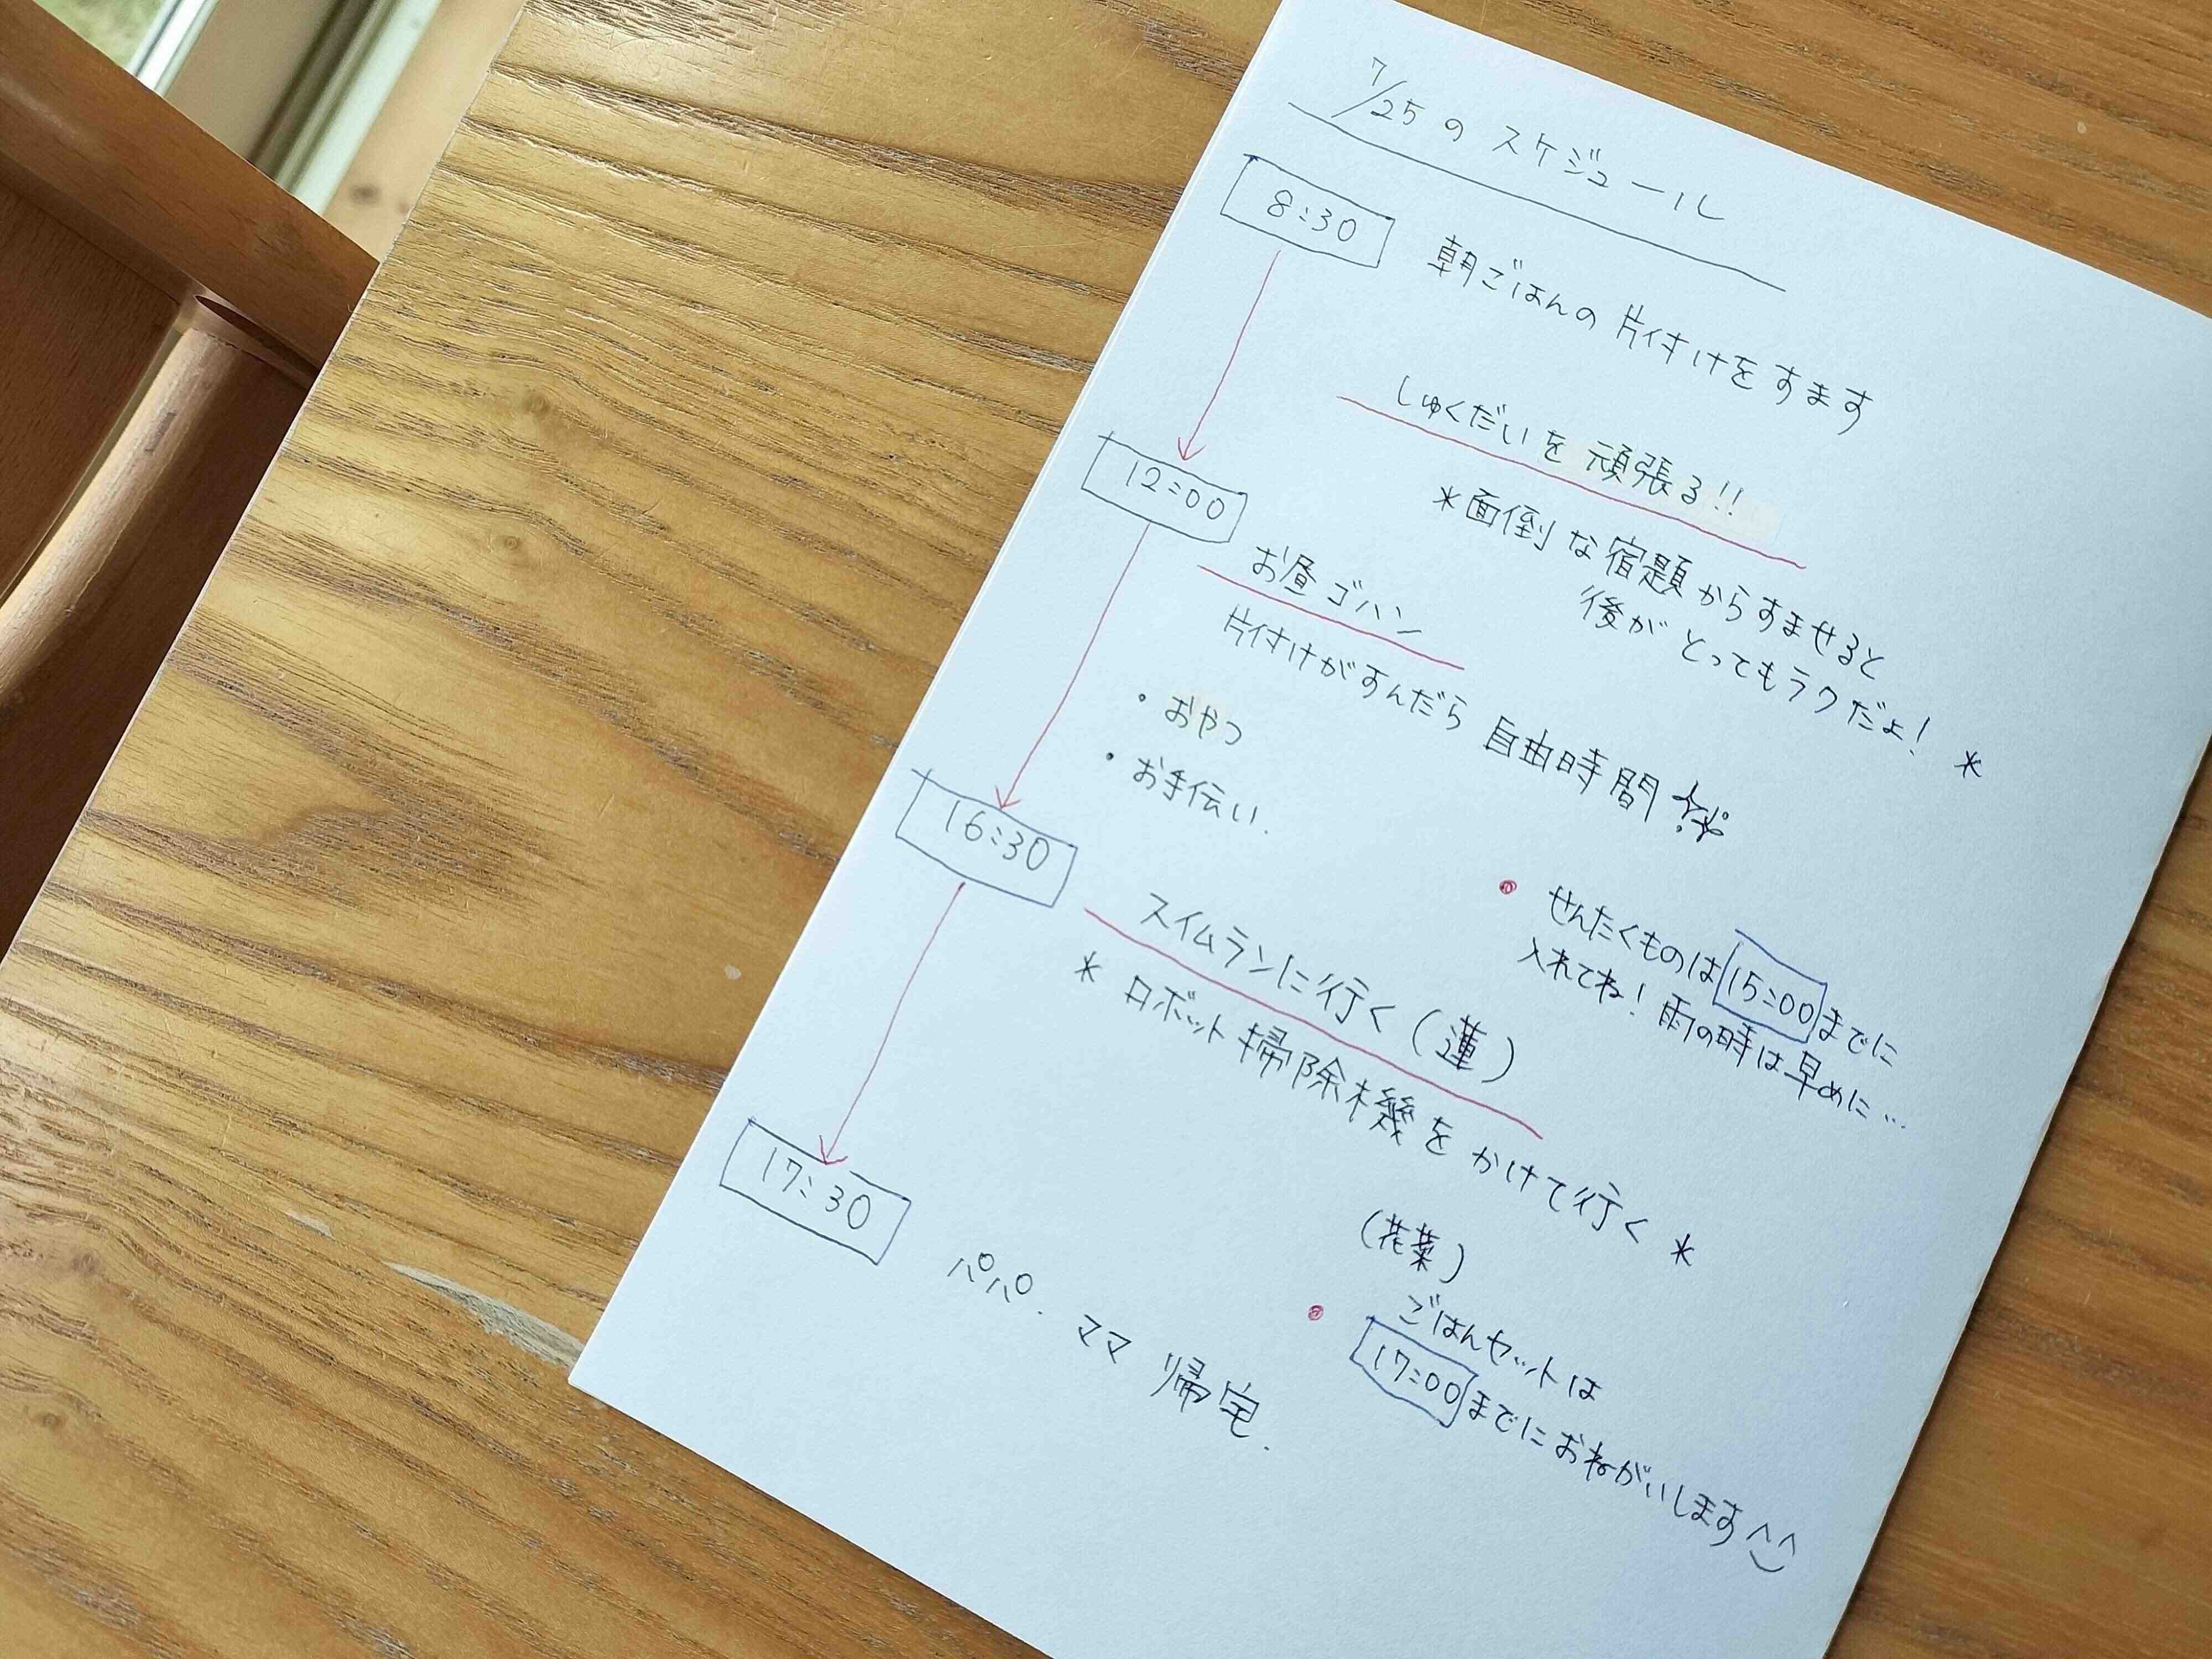 7/25の スケジュール
8:30
朝ごはんの 片付けをすます
しゅくだいを 頑張る!!
*面倒な宿題からすませると
後が とってもラクだよ! *
12:00
お昼ゴハン
片付けがすんだら 自由時間
・おやつ
・お手伝い.
• せんたくものは 15:00 までに
入れてね! 雨の時は早めに…
16:30
スイムランに行く (蓮)
* ロボット掃除機を かけて行く *
(花菜)
• ごはんセットは
17:00 までにおねがいします^^
17:30
パパ・ママ 帰宅.